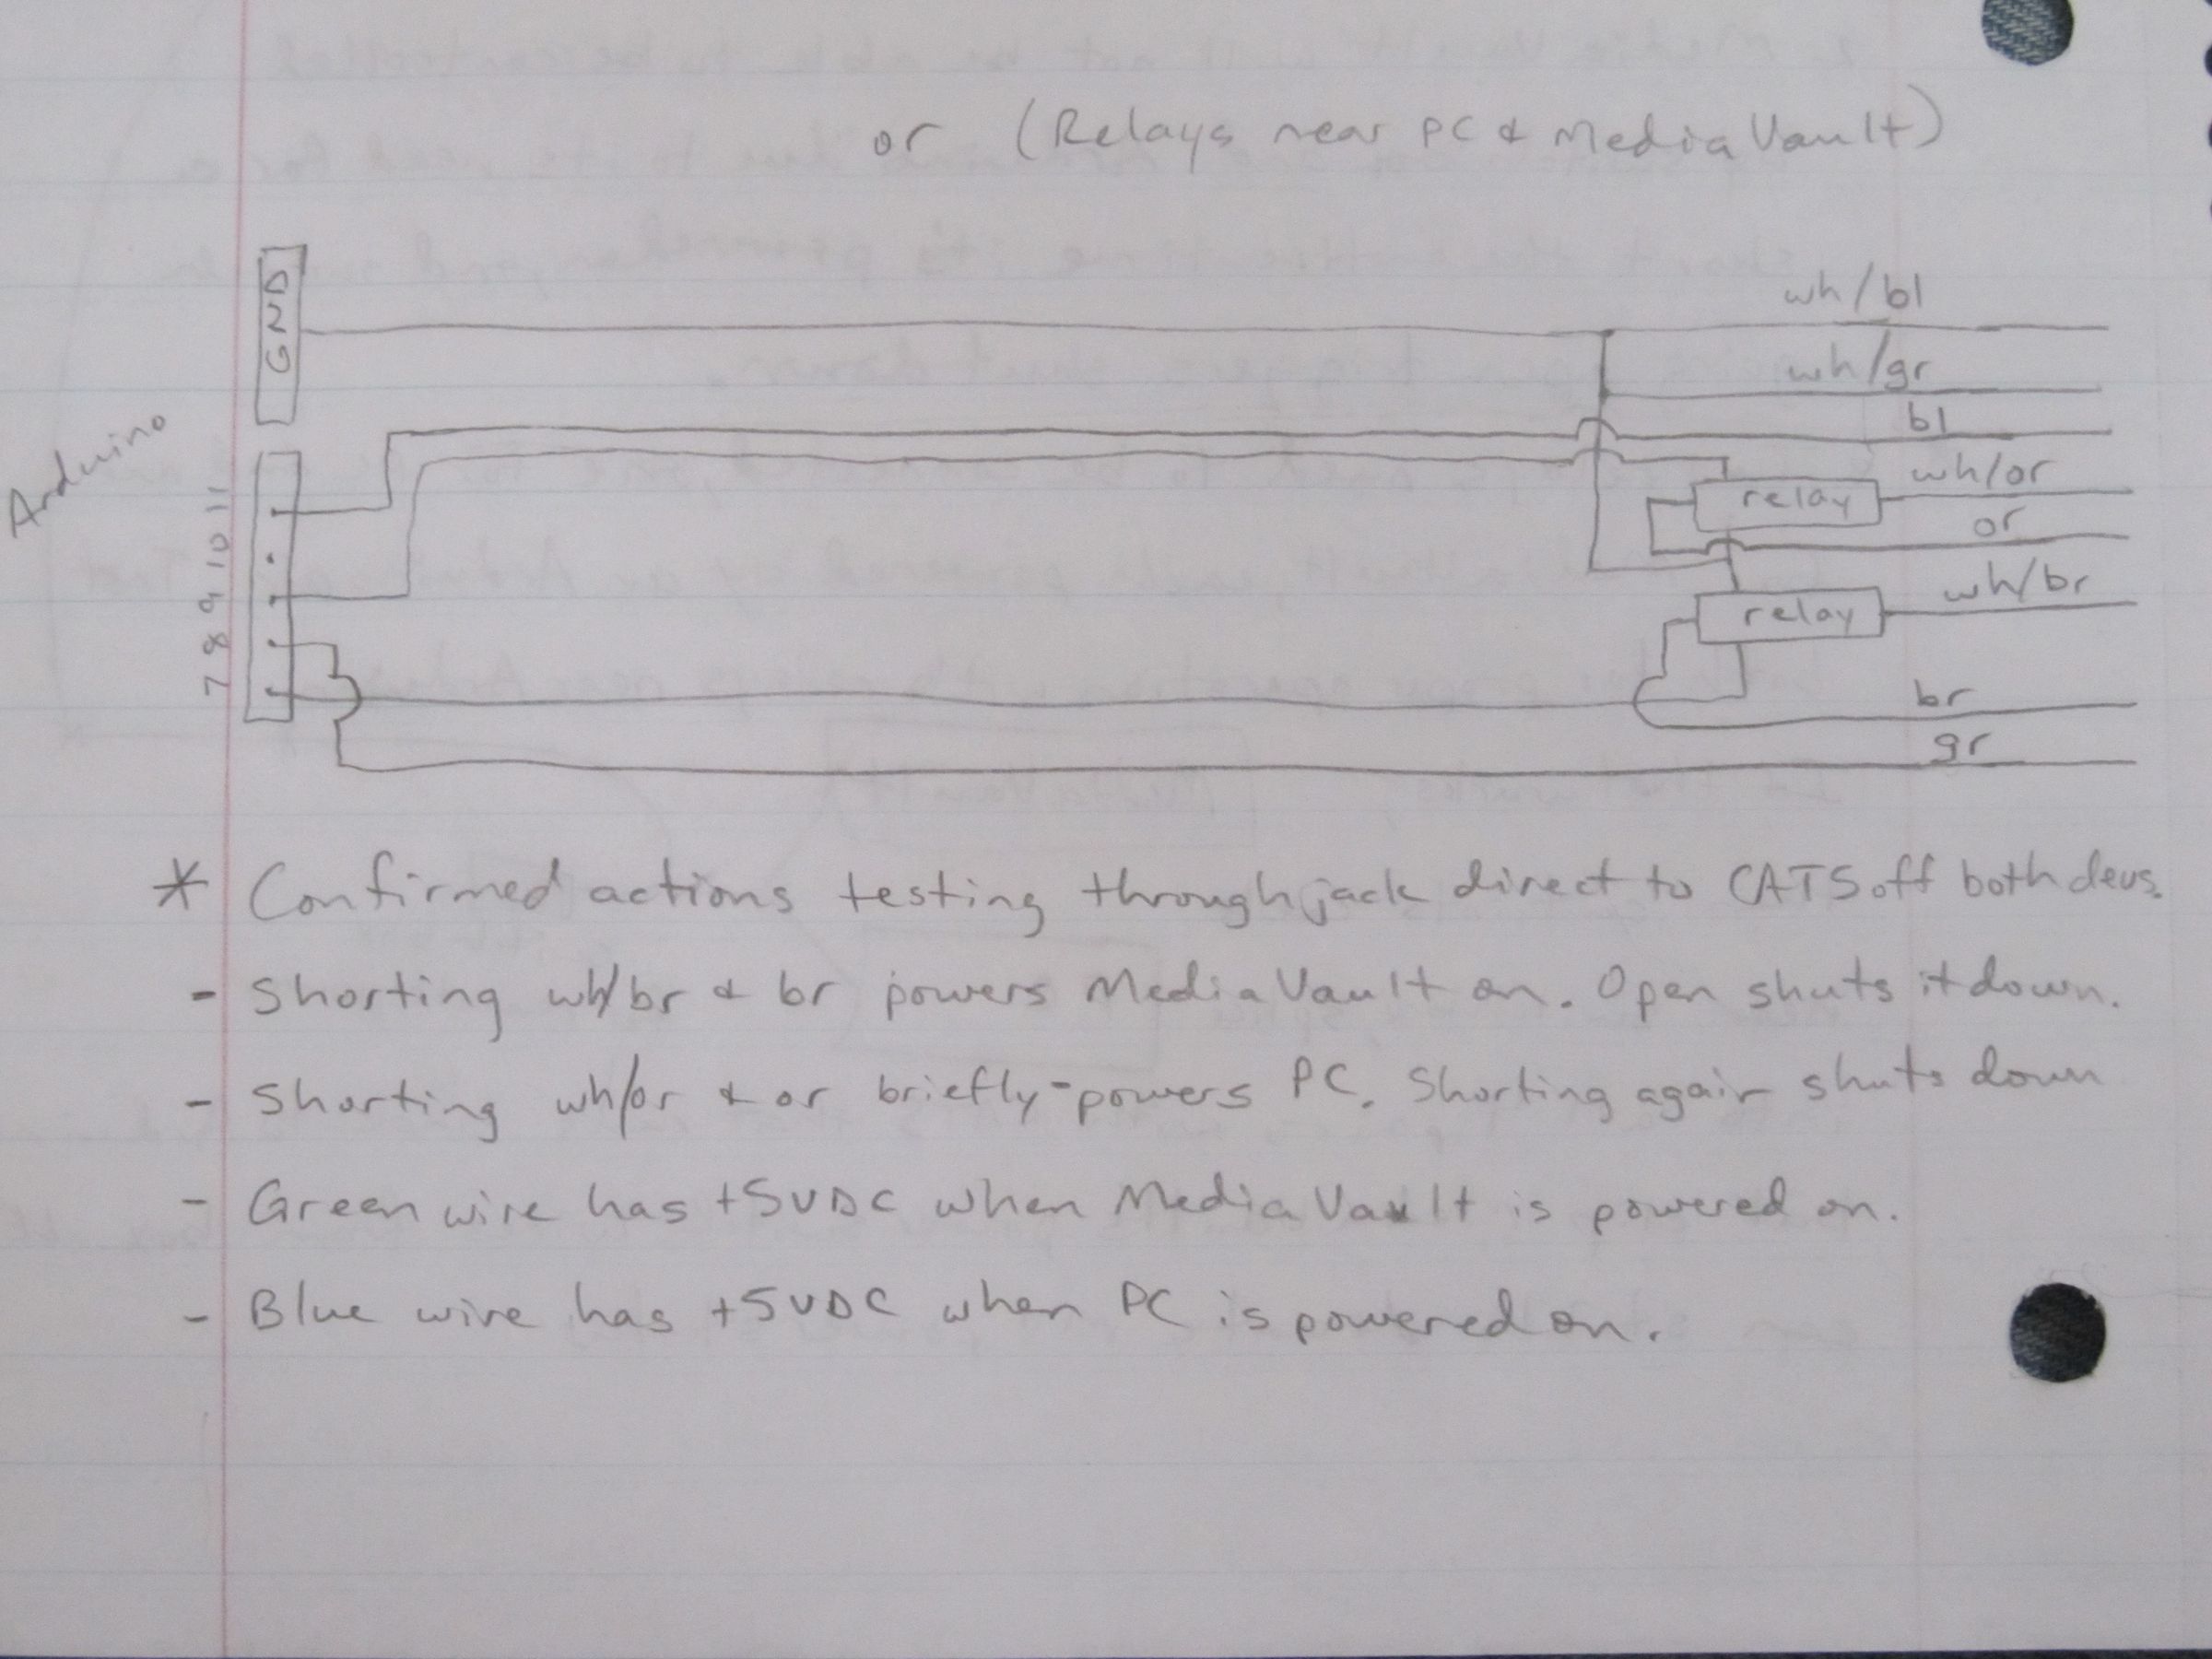 or (Relays near PC & MediaVault)
GND
wh/bl
wh/gr
bl
Arduino
11
10
9
8
7
relay
wh/or
or
relay
wh/br
br
gr
* Confirmed actions testing through jack direct to CAT5 off both devs.
- Shorting wh/br & br powers MediaVault on. Open shuts it down.
- Shorting wh/or & or briefly-powers PC. Shorting again shuts down
- Green wire has +5VDC when MediaVault is powered on.
- Blue wire has +5VDC when PC is powered on.